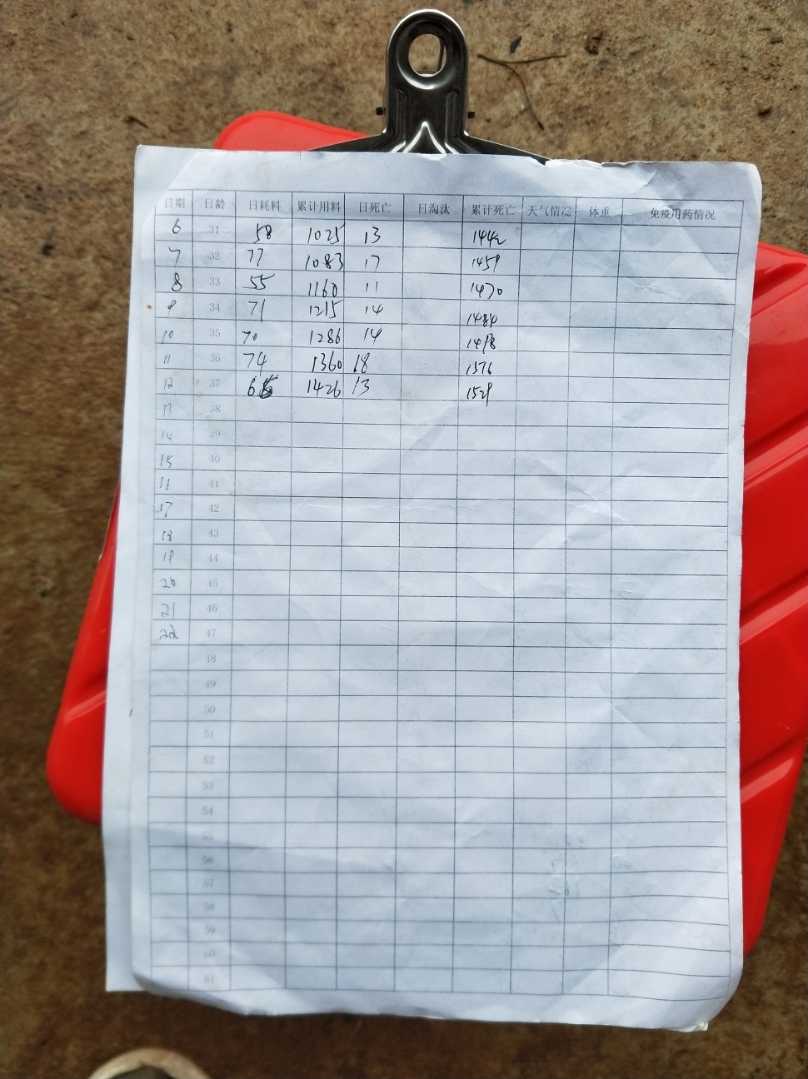 日期 日龄 日耗料 累计用料 日死亡 日淘汰 累计死亡 天气情况 体重 免疫用药情况
6 31 58 1025 13 1442
7 32 77 1083 17 1459
8 33 55 1160 11 1470
9 34 71 1215 14 1484
10 35 70 1286 14 1498
11 36 74 1360 18 1516
12 37 66 1426 13 1529
13 38
14 39
15 40
16 41
17 42
18 43
19 44
20 45
21 46
22 47
48
49
50
51
52
53
54
55
56
57
58
59
60
61